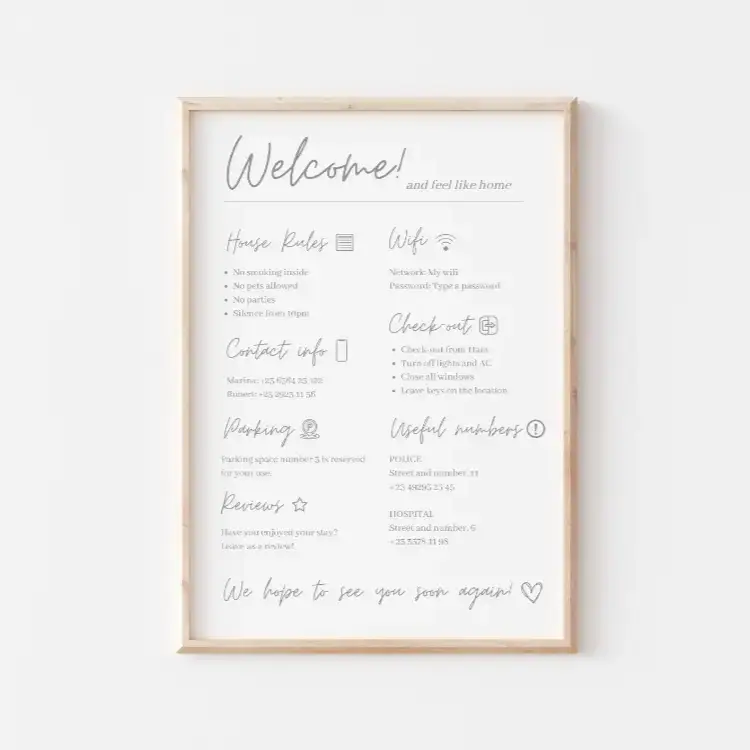 Welcome!
and feel like home
House Rules
• No smoking inside
• No pets allowed
• No parties
• Silence from 10pm
Contact info
Marine:
Parking
Parking space number 5 is reserved
for your use.
Reviews
Have you enjoyed your stay?
Leave us a review!
Wifi
Network: My wifi
Password: Type a password
Check-out
• Check-out from 11am
• Turn off lights and AC
• Close all windows
• Leave keys on the location
Useful numbers
POLICE
Street and number, 21
+23 49295 23 45
HOSPITAL
Street and number, 6
+23 3578 11 98
We hope to see you soon again!